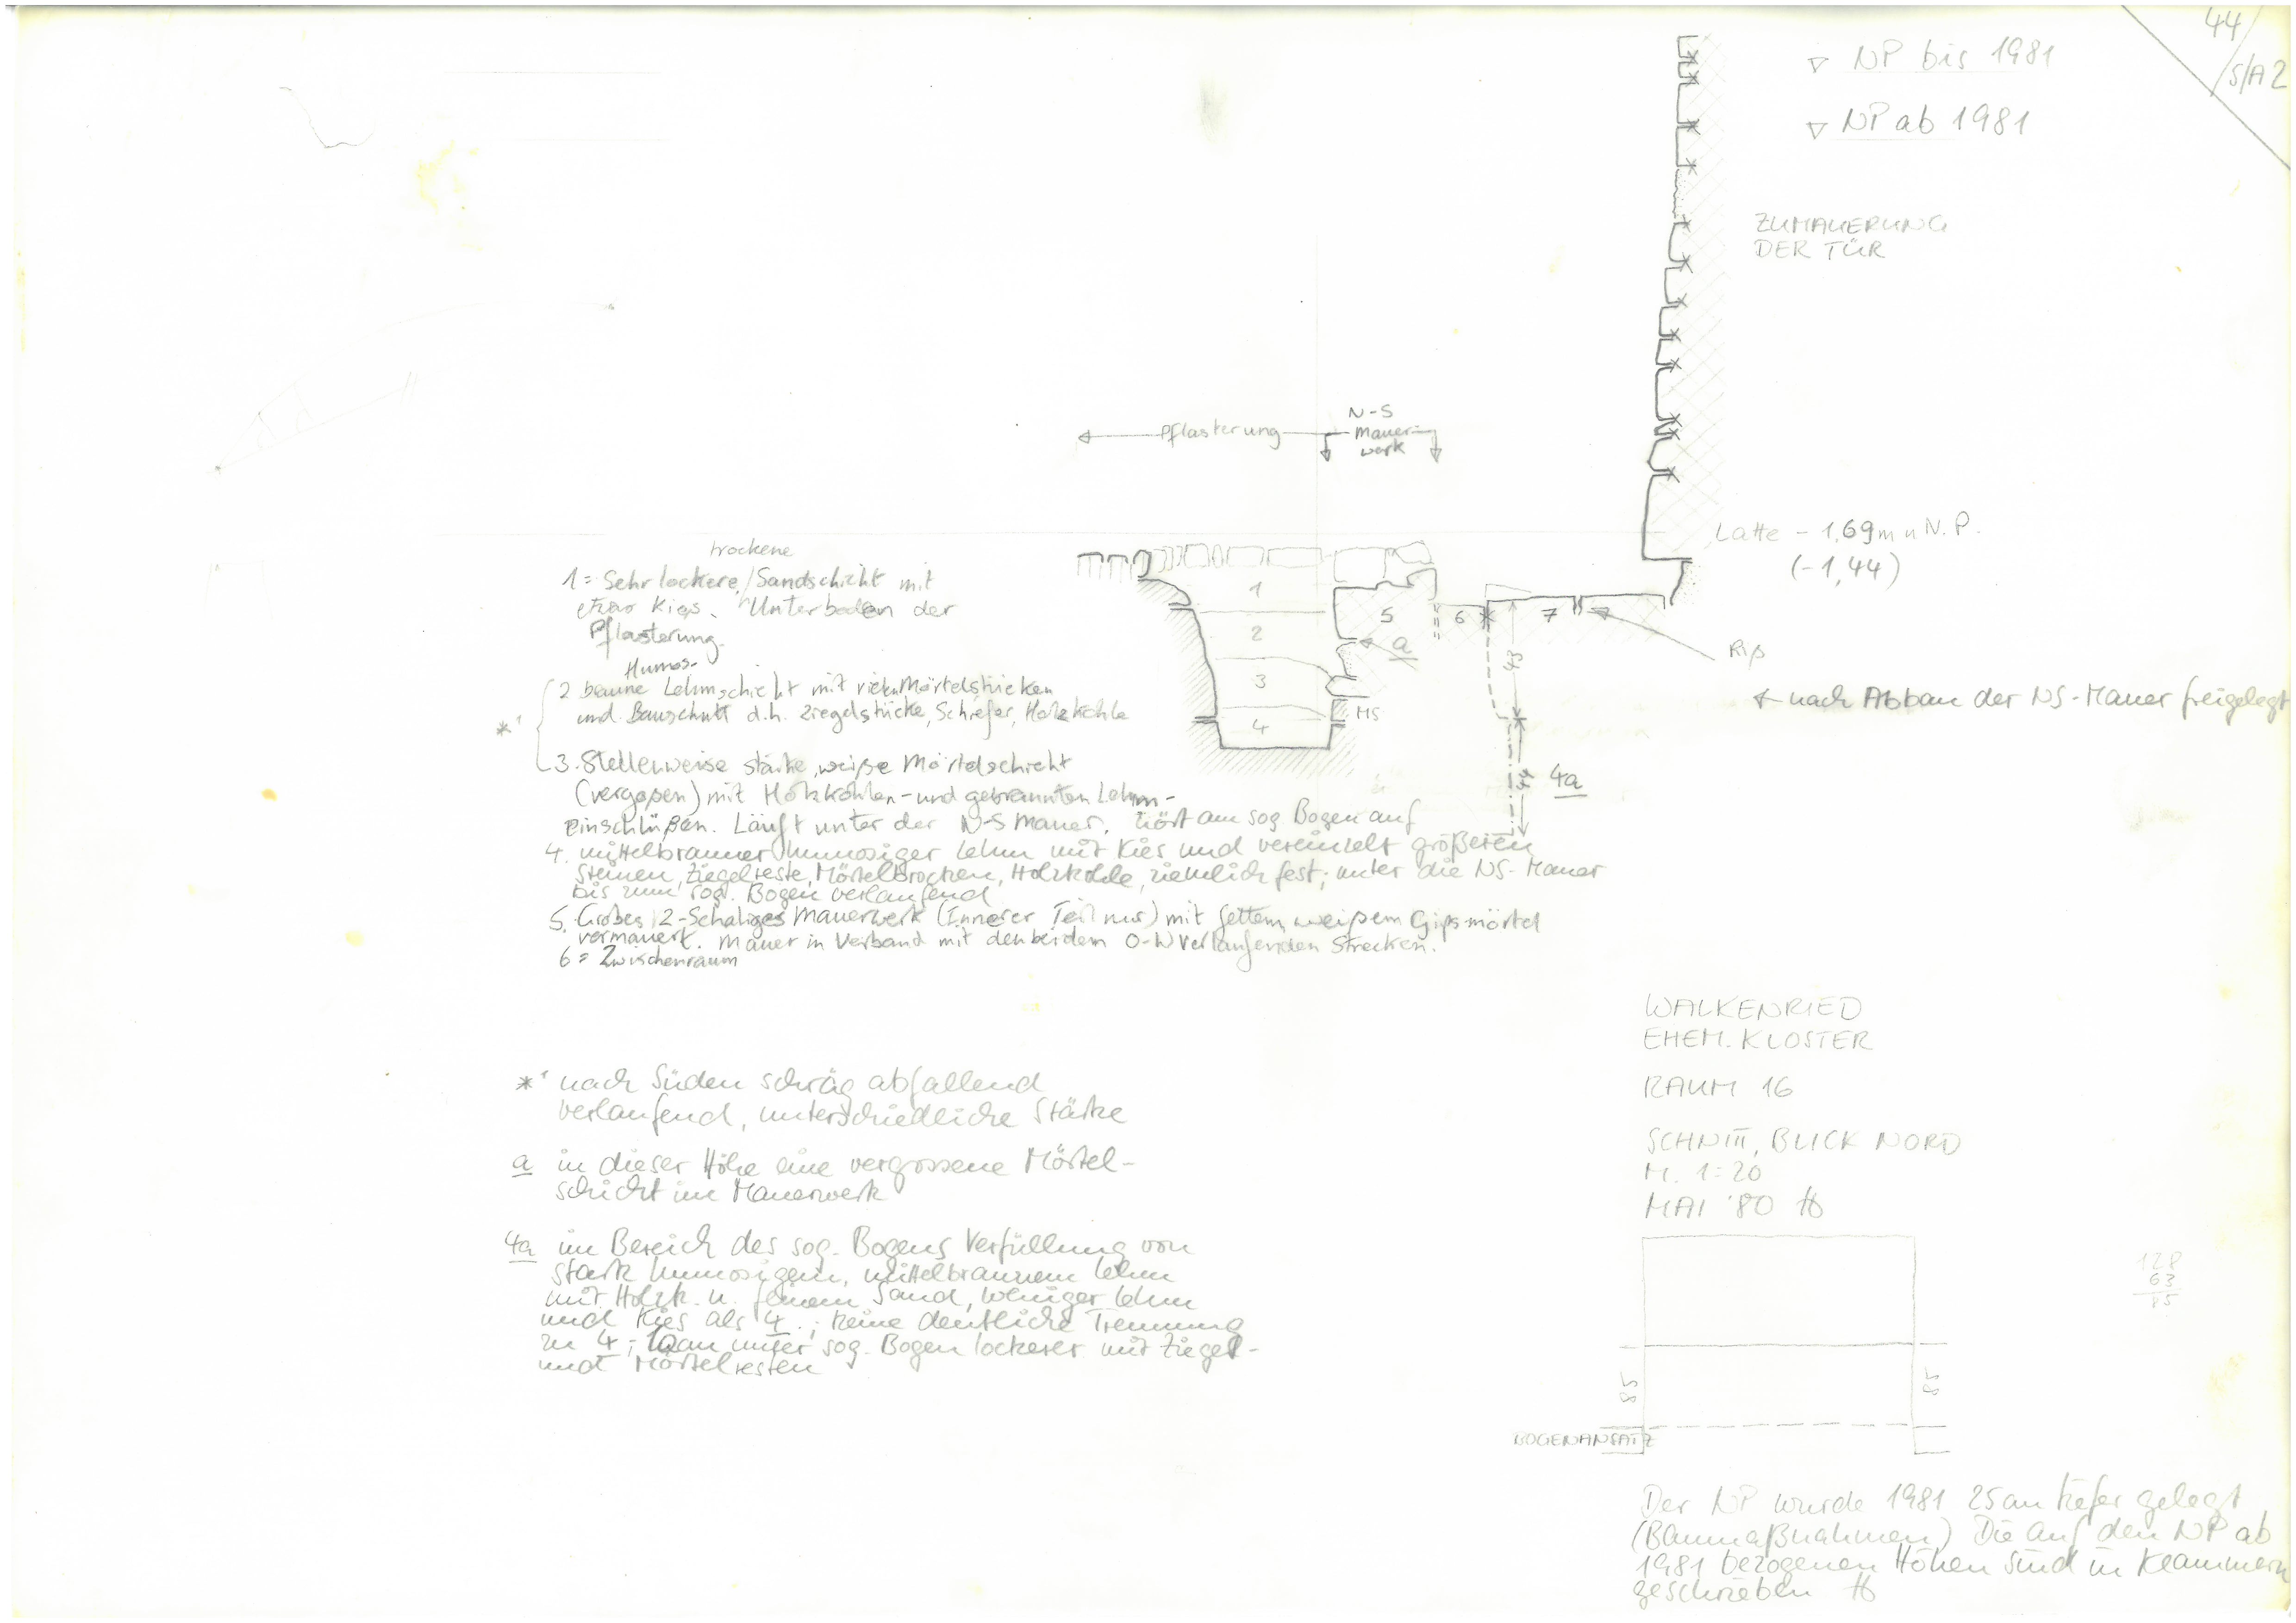 44/
S/A2
▽ NP bis 1981
▽ NP ab 1981
ZUMAUERUNG
DER TÜR
N-S
Pflasterung
Mauer-
werk
Latte - 1,69m u N.P.
(-1,44)
trockene
1 = Sehr lockere / Sandschicht mit
etwas Kies. Unterboden der
Pflasterung.
Humos-
2 braune Lehmschicht mit vielen Mörtelstücken
und Bauschutt d.h. Ziegelstücke, Schiefer, Holzkohle
*¹
3. Stellenweise starke, weiße Mörtelschicht
(vergoßen) mit Holzkohlen- und gebrannten Lehm-
einschlüßen. Läuft unter der N-S Mauer, hört am sog. Bogen auf
4. mittelbrauner humosiger Lehm mit Kies und vereinzelt größeren
Steinen, Ziegelreste, Mörtelbrocken, Holzkohle, ziemlich fest; unter die NS-Mauer
bis zum sog. Bogen verlaufend
5. Grobes, 2-Schaliges Mauerwerk (Innerer Teil nur) mit fettem, weißem Gipsmörtel
vermauert. Mauer in Verband mit den beiden O-W verlaufenden Strecken.
6 = Zwischenraum
1
2
3
4
5
6
7
a
MS
43
4a
Riß
← nach Abbau der NS-Mauer freigelegt
*¹ nach Süden schräg abfallend
verlaufend, unterschiedliche Stärke
a in dieser Höhe eine vergossene Mörtel-
schicht im Mauerwerk
4a im Bereich des sog. Bogens Verfüllung von
stark humosigem, mittelbraunem Lehm
mit Holzk. u. feinem Sand, weniger Lehm
und Kies als 4.; keine deutliche Trennung
zu 4; unter sog. Bogen lockerer mit Ziegel-
und Mörtelresten
WALKENRIED
EHEM. KLOSTER
RAUM 16
SCHNITT, BLICK NORD
M. 1:20
MAI '80
128
63
85
85
85
BOGENANSATZ
Der NP wurde 1981 25cm tiefer gelegt
(Baumaßnahmen) Die auf den NP ab
1981 bezogenen Höhen sind in Klammern
geschrieben